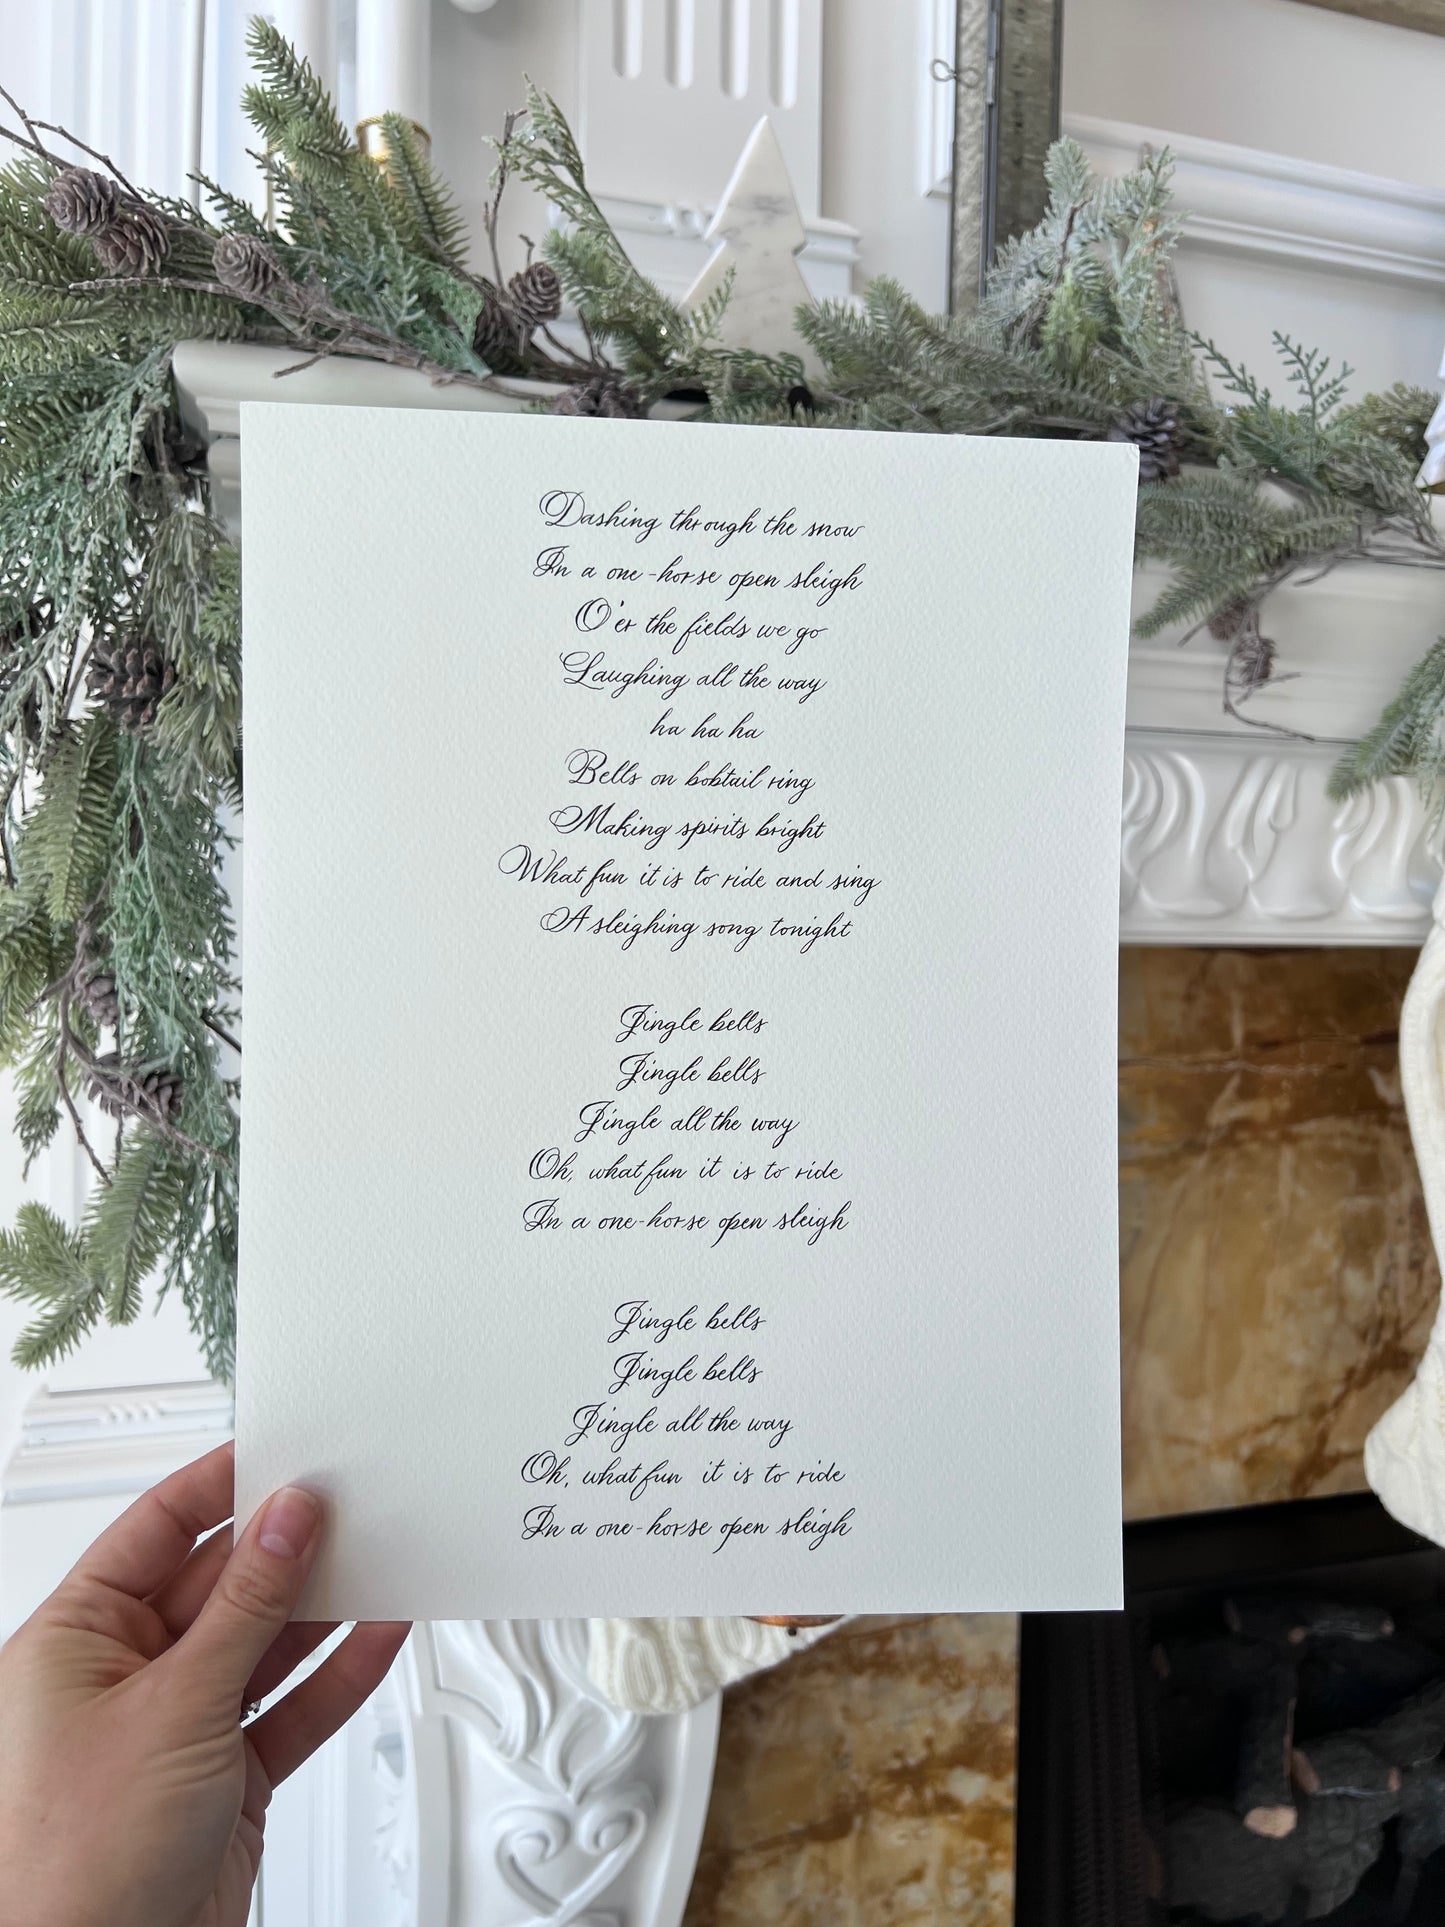 Dashing through the snow
In a one-horse open sleigh
O'er the fields we go
Laughing all the way
ha ha ha
Bells on bobtail ring
Making spirits bright
What fun it is to ride and sing
A sleighing song tonight
Jingle bells
Jingle bells
Jingle all the way
Oh, what fun it is to ride
In a one-horse open sleigh
Jingle bells
Jingle bells
Jingle all the way
Oh, what fun it is to ride
In a one-horse open sleigh